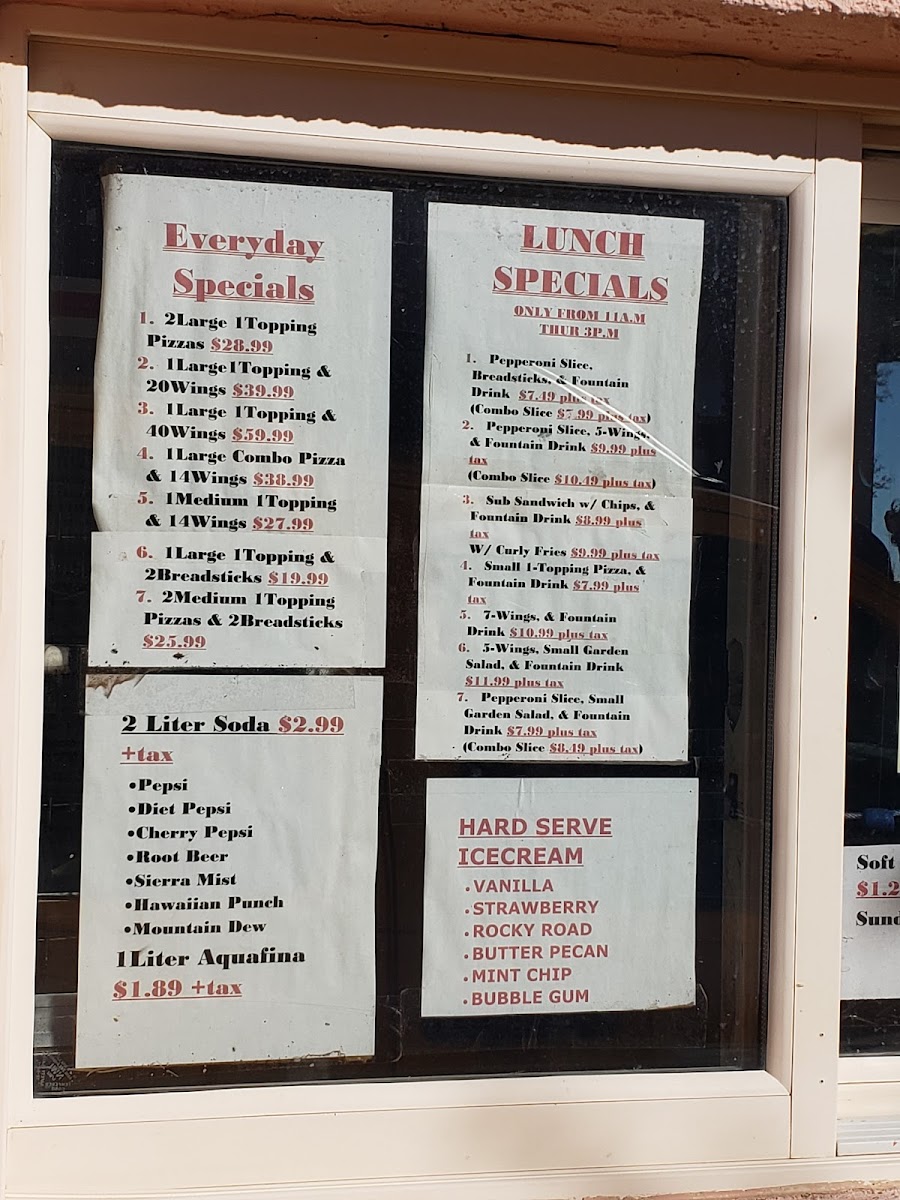 Everyday
Specials
1. 2Large 1Topping
Pizzas $28.99
2. 1Large1Topping &
20Wings $39.99
3. 1Large 1Topping &
40Wings $59.99
4. 1Large Combo Pizza
& 14Wings $38.99
5. 1Medium 1Topping
& 14Wings $27.99
6. 1Large 1Topping &
2Breadsticks $19.99
7. 2Medium 1Topping
Pizzas & 2Breadsticks
$25.99
2 Liter Soda $2.99
+tax
•Pepsi
•Diet Pepsi
•Cherry Pepsi
•Root Beer
•Sierra Mist
•Hawaiian Punch
•Mountain Dew
1Liter Aquafina
$1.89 +tax
LUNCH
SPECIALS
ONLY FROM 11A.M
THUR 3P.M
1. Pepperoni Slice,
Breadsticks, & Fountain
Drink $7.49 plus tax
(Combo Slice $7.99 plus tax)
2. Pepperoni Slice, 5-Wings,
& Fountain Drink $9.99 plus
tax
(Combo Slice $10.49 plus tax)
3. Sub Sandwich w/ Chips, &
Fountain Drink $8.99 plus
tax
W/ Curly Fries $9.99 plus tax
4. Small 1-Topping Pizza, &
Fountain Drink $7.99 plus
tax
5. 7-Wings, & Fountain
Drink $10.99 plus tax
6. 5-Wings, Small Garden
Salad, & Fountain Drink
$11.99 plus tax
7. Pepperoni Slice, Small
Garden Salad, & Fountain
Drink $7.99 plus tax
(Combo Slice $8.49 plus tax)
HARD SERVE
ICECREAM
•VANILLA
•STRAWBERRY
•ROCKY ROAD
•BUTTER PECAN
•MINT CHIP
•BUBBLE GUM
Soft
$1.2
Sund